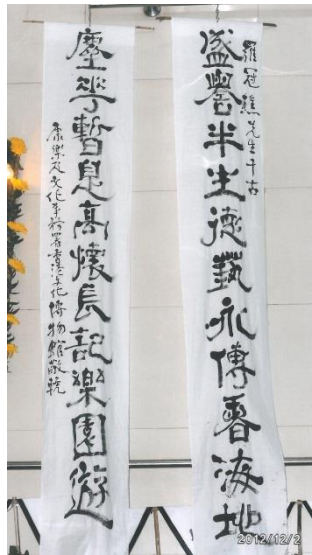 羅冠樵先生千古
盛譽半生德藝永傳香海地
塵暫息高懷長記樂園遊
康樂及文化事務署香港文化博物館敬輓
2012/12/2